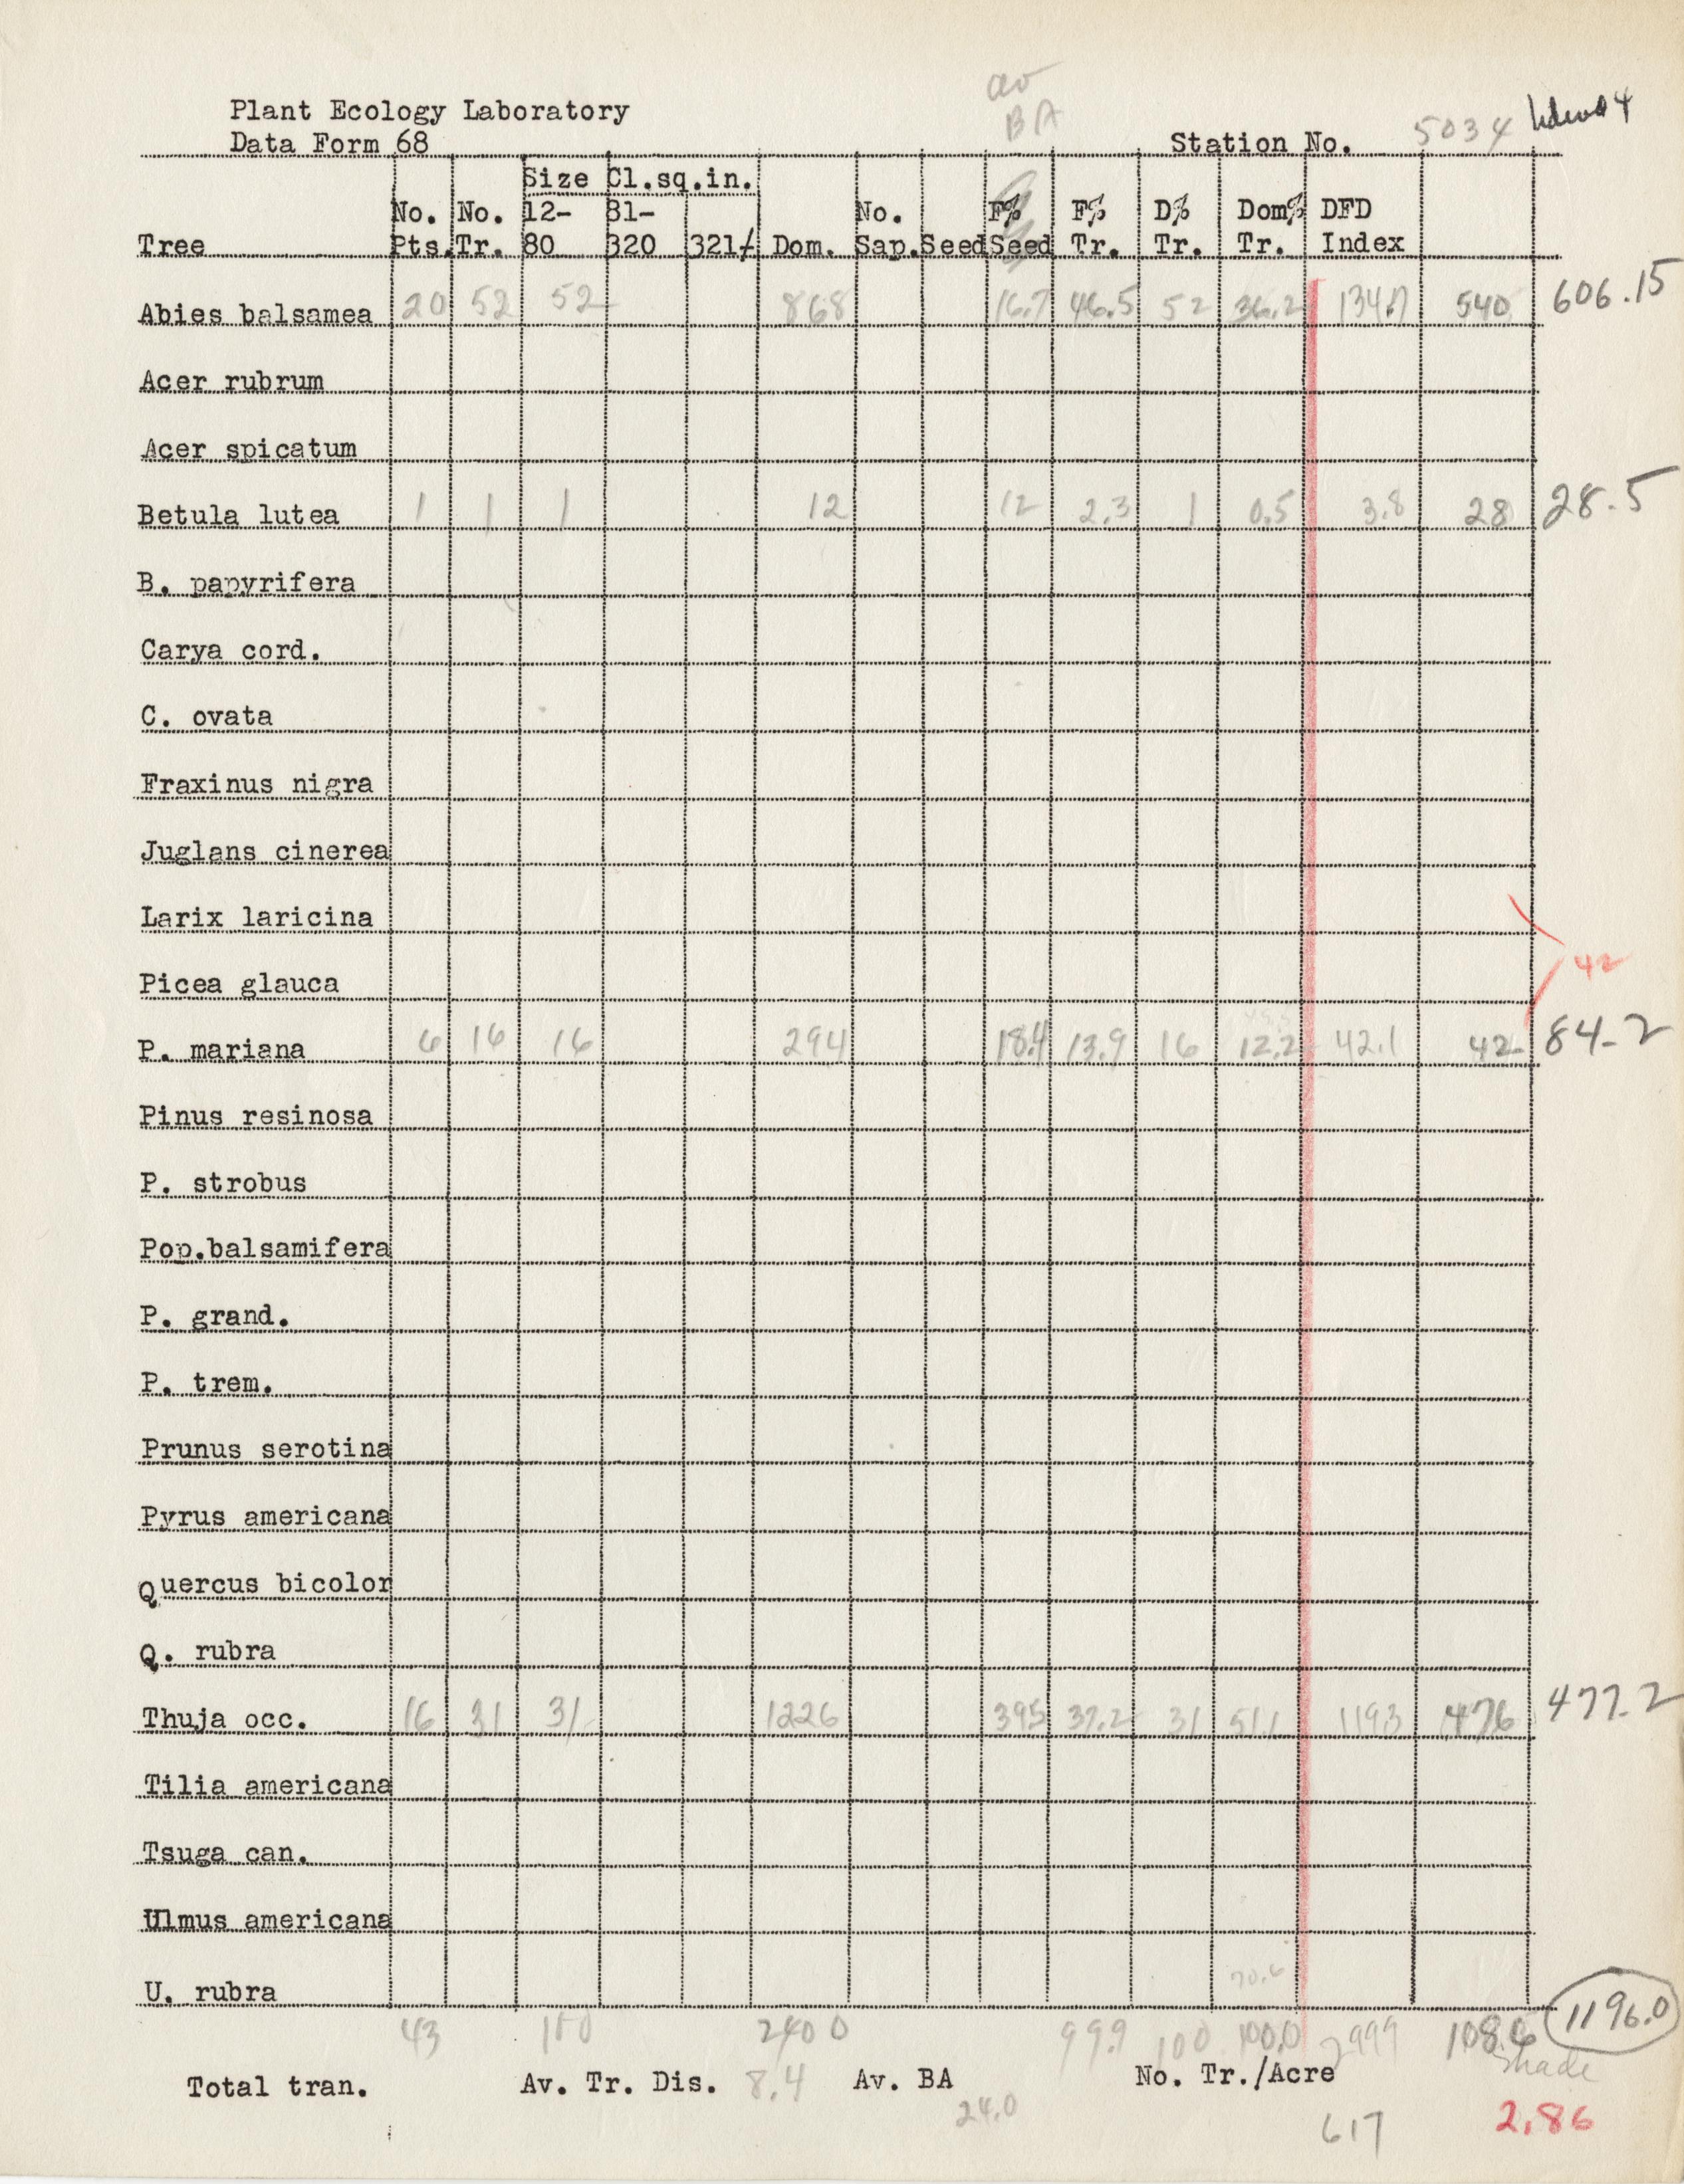 av
BA
Plant Ecology Laboratory
Data Form 68 Station No. 5034
Size Cl.sq.in.
No. No. 12- 81- No. F% F% D% Dom% DFD
Tree Pts. Tr. 80 320 321+ Dom. Sap. Seed Seed Tr. Tr. Tr. Index
Abies balsamea 20 52 52 868 16.7 46.5 52 36.2 134.7 540 606.15
Acer rubrum
Acer spicatum
Betula lutea 1 1 1 12 12 2.3 1 0.5 3.8 28 28.5
B. papyrifera
Carya cord.
C. ovata
Fraxinus nigra
Juglans cinerea
Larix laricina
Picea glauca 42
P. mariana 6 16 16 294 18.4 13.9 16 12.2 42.1 42 84.2
Pinus resinosa
P. strobus
Pop.balsamifera
P. grand.
P. trem.
Prunus serotina
Pyrus americana
Quercus bicolor
Q. rubra
Thuja occ. 16 31 31 1226 395 37.2 31 51.1 1193 476 477.2
Tilia americana
Tsuga can.
Ulmus americana
70.6
U. rubra
43 100 2400 99.9 100 100.0 2999 1086 1196.0
shade
Total tran. Av. Tr. Dis. 8.4 Av. BA 24.0 No. Tr./Acre 617 2.86